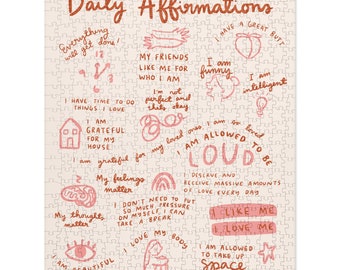 Daily Affirmations
Everything
will get done!
MY FRIENDS
LIKE ME FOR
WHO I AM
I HAVE A GREAT BUTT
I am
funny
I am
intelligent
I HAVE TIME TO DO
THINGS I LOVE
I'm not
perfect and
thats okay
I AM
GRATEFUL
FOR MY
HOUSE!
I am grateful for my loved ones, I am so loved
I AM ALLOWED TO BE
LOUD
I DESERVE AND
RECEIVE MASSIVE AMOUNTS
OF LOVE EVERY DAY
My feelings
matter
My thoughts
matter
I DON'T NEED TO PUT
SO MUCH PRESSURE
ON MYSELF, I CAN
TAKE A BREAK
I LIKE ME
I LOVE ME
I LOVE MY BODY
I AM BEAUTIFUL
I AM ALLOWED
TO TAKE UP
SPACE